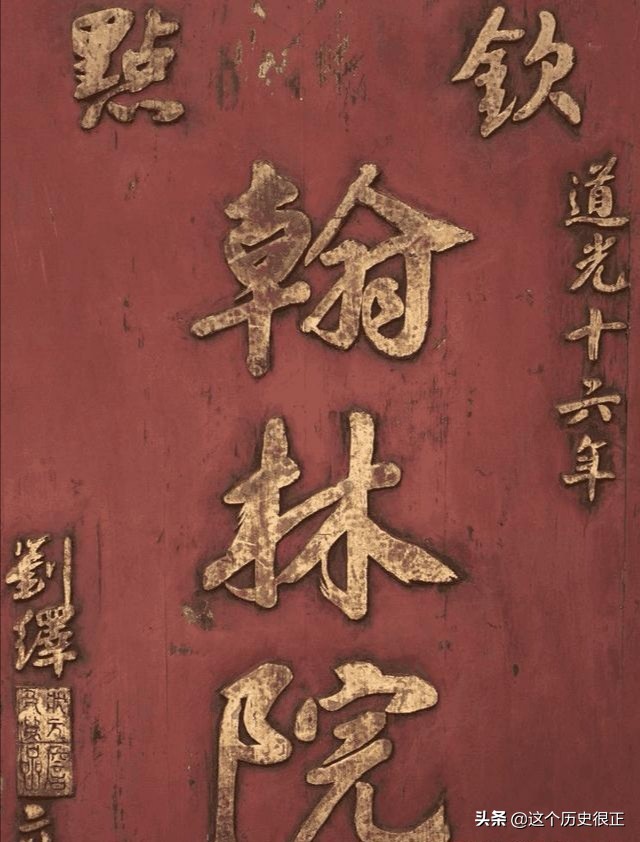 欽點
道光十六年
翰林院
劉繹
头条 @这个历史很正